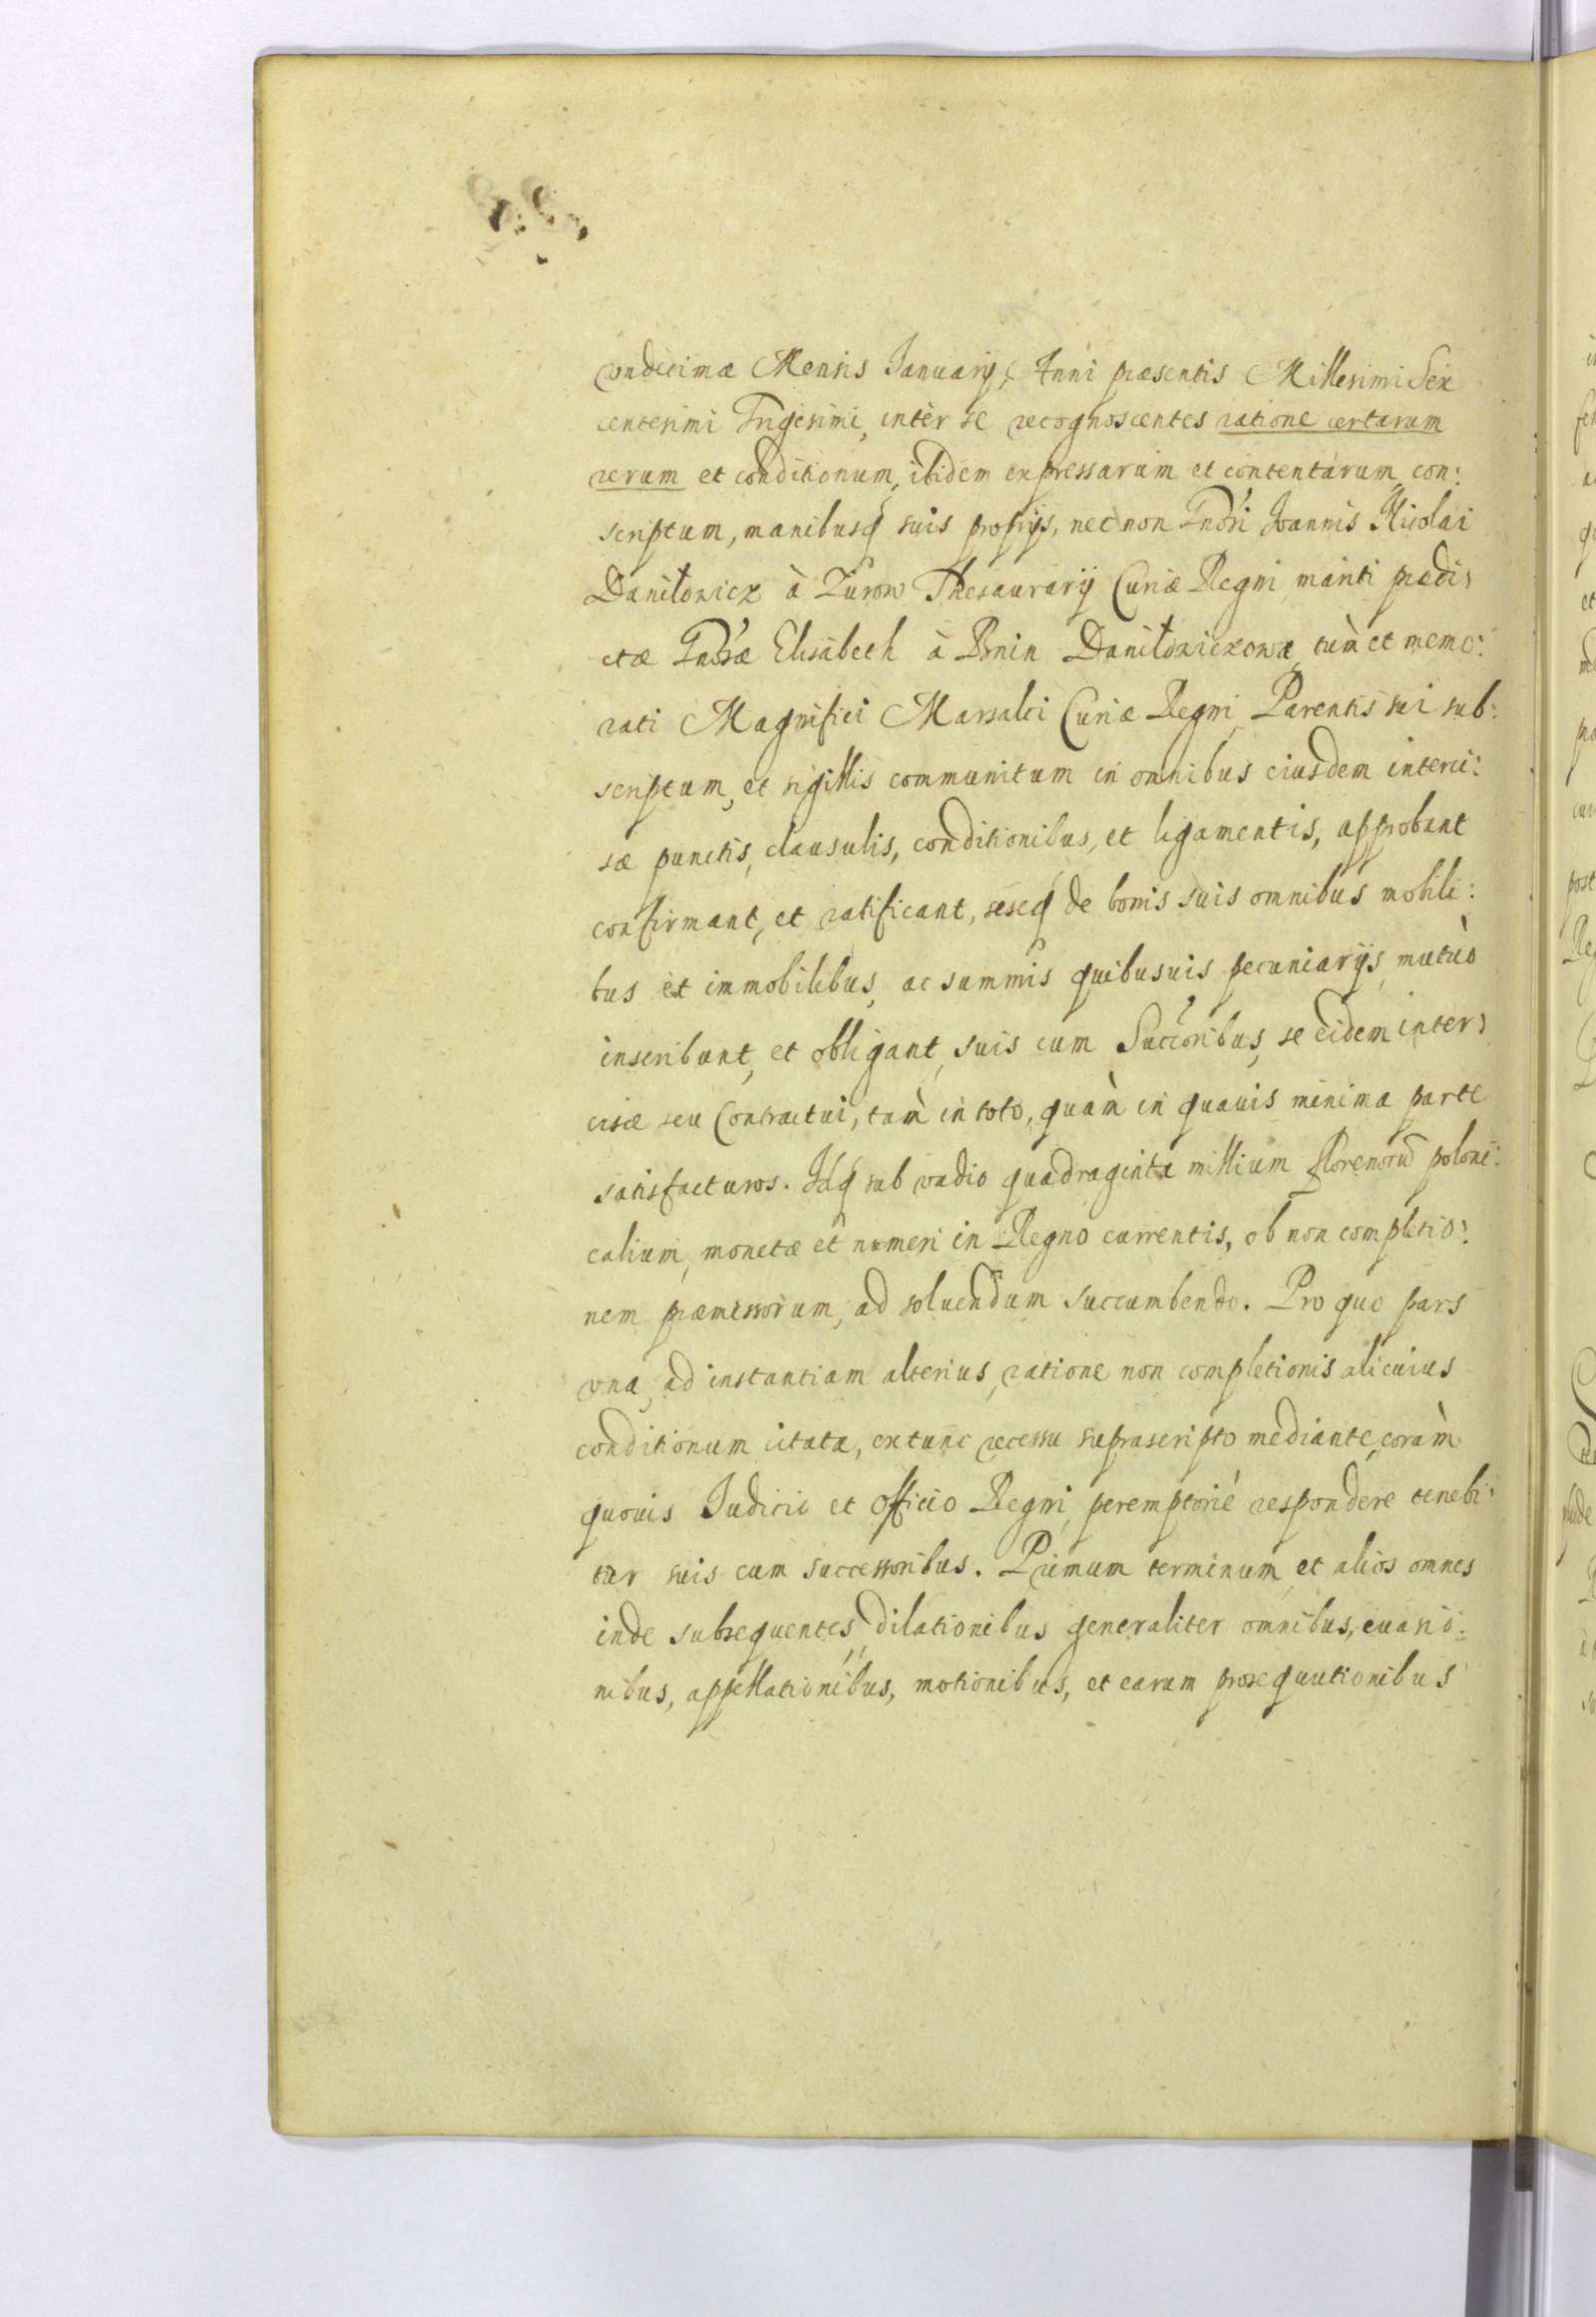 vndecimæ Mensis Ianuarij, Anni præsentis Millesimi Sex
centesimi Trigesimi, intèr se recognoscentes ratione certarum
rerum et conditionum, ibidem expressarum et contentarum, con:
scriptum, manibusq suis proprijs, nec non Gnosi Ioannis Nicolai
Daniłowicz à Zurow Thesaurarij Curiæ Regni, mariti prædi:
ctæ Gnosæ Elisabeth à Bnin Daniłowiczowa, tùm et memo:
rati Magnifici Marsalci Curiæ Regni, Parentis sui sub:
scriptum, et sigillis communitum in omnibus eiusdem interci:
sæ punctis, clausulis, conditionibus, et ligamentis, approbant
confirmant, et ratificant, seseq de bonis suis omnibus mobili:
bus et immobilibus, ac summis quibusuis pecuniarijs, mutùo
inscribunt, et obligant, suis cum Succoribus, se eidem inter:
cisæ seu Contractui, tam̀ in toto, quàm in quauis minima parte
satisfacturos. Idq sub vadio quadraginta millium florenorũ poloni:
calium, monetæ et numeri in Regno currentis, ob non completio:
nem præmissorum, ad soluendum succumbendo. Pro quo pars
vna, ad instantiam alterius, ratione non completionis alicuius
conditionum citata, extunc recessu suprascripto mediante, coràm
quouis Iudicii et Officio Regni, peremptoriè respondere tenebi:
tur suis cum successoribus. Primum terminum, et alios omnes
inde subsequentes, dilationibus generaliter omnibus, euasio:
nibus, appellationibus, motionibus, et earum prosequutionibus